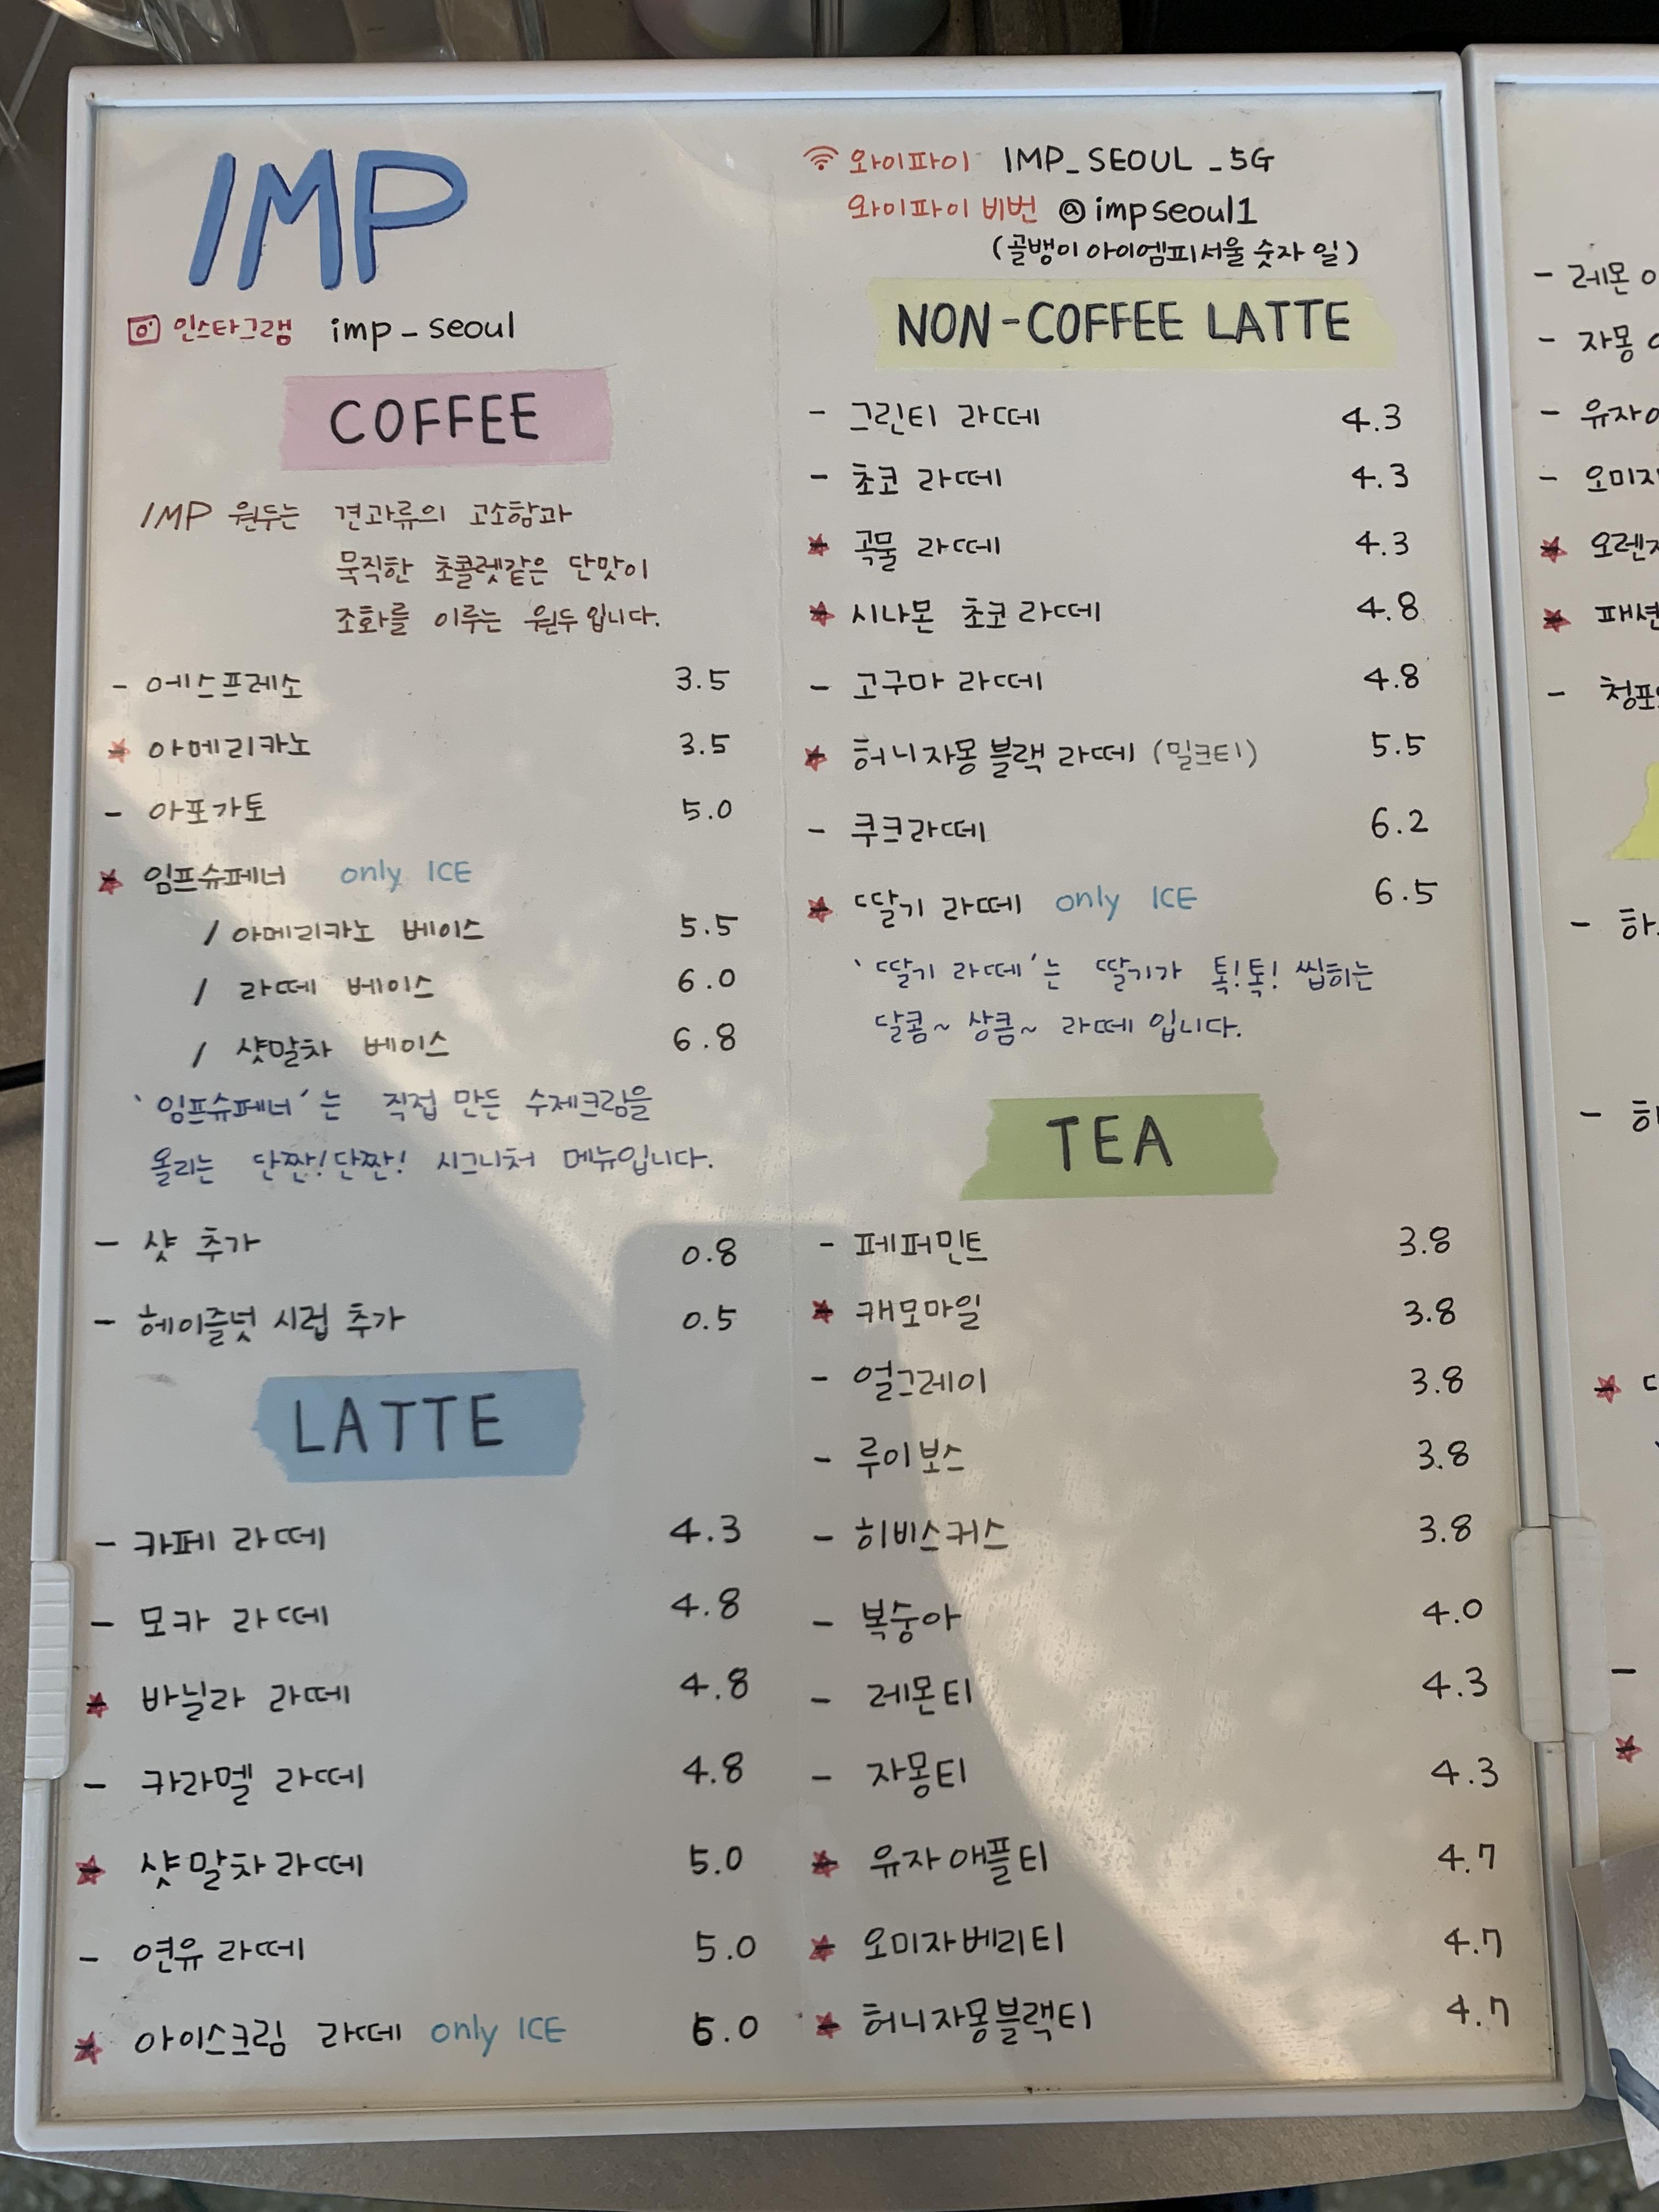 IMP
인스타그램 imp_seoul
COFFEE
IMP 원두는 견과류의 고소함과
묵직한 초콜렛같은 단맛이
조화를 이루는 원두입니다.
- 에스프레소 3.5
아메리카노 3.5
- 아포가토 5.0
임프슈페너 only ICE
/ 아메리카노 베이스 5.5
/ 라떼 베이스 6.0
/ 샷말차 베이스 6.8
'임프슈페너'는 직접 만든 수제크림을
올리는 단짠!단짠! 시그니처 메뉴입니다.
- 샷 추가 0.8
- 헤이즐넛 시럽 추가 0.5
LATTE
- 카페 라떼 4.3
- 모카 라떼 4.8
바닐라 라떼 4.8
- 카라멜 라떼 4.8
샷말차라떼 5.0
- 연유라떼 5.0
아이스크림 라떼 only ICE 6.0
와이파이 IMP_SEOUL_5G
와이파이 비번 @impseoul1
(골뱅이 아이엠피서울 숫자 일)
NON-COFFEE LATTE
- 그린티 라떼 4.3
- 초코 라떼 4.3
곡물 라떼 4.3
시나몬 초코라떼 4.8
- 고구마 라떼 4.8
허니자몽블랙 라떼 (밀크티) 5.5
- 쿠크라떼 6.2
딸기 라떼 only ICE 6.5
'딸기 라떼'는 딸기가 톡!톡! 씹히는
달콤~ 상콤~ 라떼입니다.
TEA
- 페퍼민트 3.8
캐모마일 3.8
- 얼그레이 3.8
- 루이보스 3.8
- 히비스커스 3.8
- 복숭아 4.0
- 레몬티 4.3
- 자몽티 4.3
유자애플티 4.7
오미자베리티 4.7
허니자몽블랙티 4.7
- 레몬
- 자몽
- 유자
- 오미자